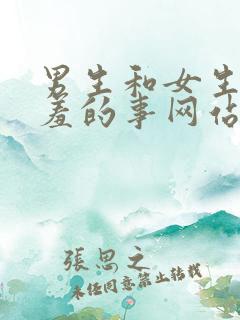 男生和女生
羞的事网站
張思之
未经同意禁止转载